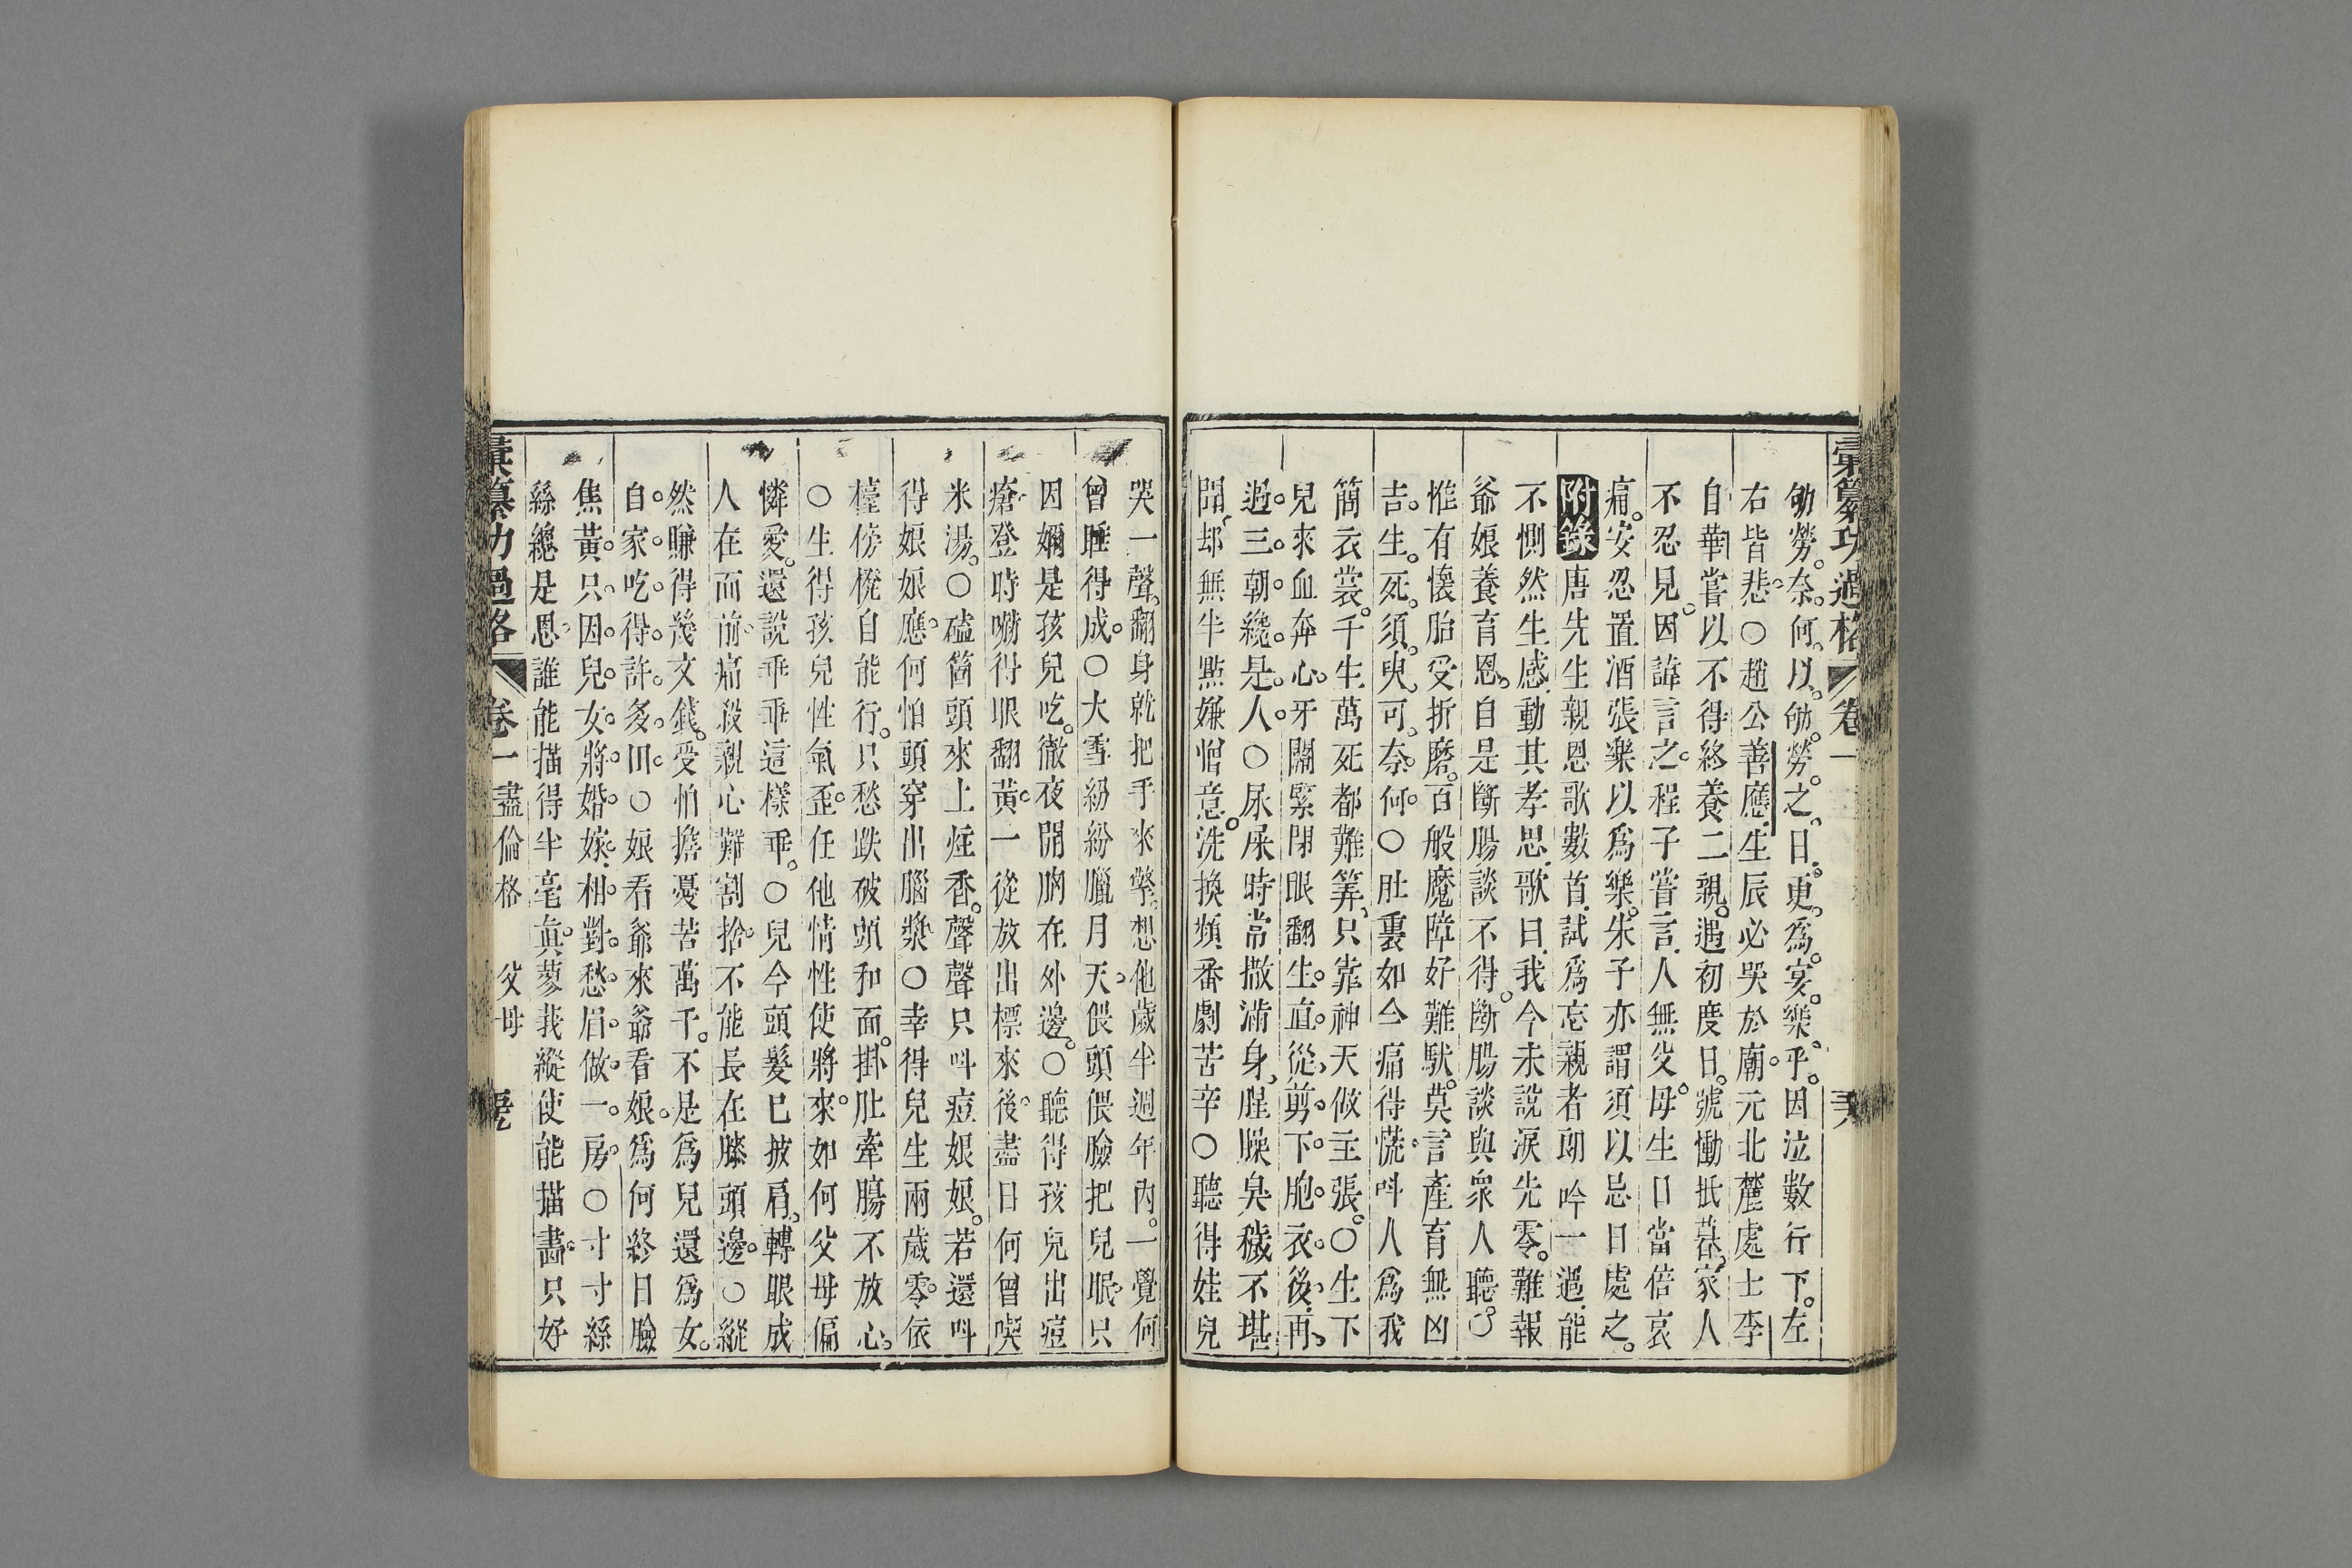 彙纂功過格 卷一
劬勞。奈何。以。劬。勞。之。日。更。爲。宴。樂。乎。因泣數行下。左
右皆悲。○趙公善應生辰必哭於廟。元北麓處士李
自華嘗以不得終養二親。遇初度日。號慟抵暮。家人
不忍見。因諱言之。程子嘗言。人無父母。生日當倍哀
痛。安忍置酒張樂以爲樂。朱子亦謂須以忌日處之。
附錄 唐先生親恩歌數首。試爲忘親者朗吟一過。能
不惻然生感。動其孝思。歌曰。我今未說淚先零。難報
爺娘養育恩。自是斷腸談不得。斷腸談與衆人聽。○
惟有懷胎受折磨。百般魔障好難馱。莫言產育無凶
吉。生。死。須。臾。可。奈。何。○肚裏如今痛得慌。呌人爲我
簡衣裳。千生萬死都難筭。只靠神天做主張。○生下
兒來血奔心。牙關緊閉眼翻生。直。從。剪。下。胞。衣。後。再。
過。三。朝。纔。是。人。○尿屎時常撒滿身。腥臊臭穢不堪
聞。却無半點嫌憎意。洗換頻番劇苦辛。○聽得娃兒
哭一聲。翻身就把手來擎。想他歲半週年內。一覺何
曾睡得成。○大雪紛紛臘月天。偎頭偎臉把兒眠。只
因嬭是孩兒吃。徹夜開胸在外邊。○聽得孩兒出痘
瘡。登時嚇得眼翻黃。一從放出標來後。盡日何曾喫
米湯。○磕箇頭來上炷香。聲聲只呌痘娘娘。若還呌
得娘娘應。何怕頭穿出腦漿。○幸得兒生兩歲零。依
檯傍櫈自能行。只愁跌破頭和面。掛肚牽腸不放心。
○生得孩兒性氣歪。任他情性使將來。如何父母偏
憐愛。還說乖乖這樣乖。○兒今頭髮已披肩。轉眼成
人在面前。痛殺親心難割捨。不能長在膝頭邊。○縱
然賺得幾文錢。受怕擔憂苦萬千。不是爲兒還爲女。
自。家。吃。得。許。多。田。○娘看爺來爺看娘。爲何終日臉
焦黃。只。因。兒。女。將。婚。嫁。相。對。愁。眉。做。一。房。○寸寸絲
絲總是恩。誰能描得半毫眞。蓼莪縱使能描畵。只好
彙纂功過格 卷一 盡倫格 父母